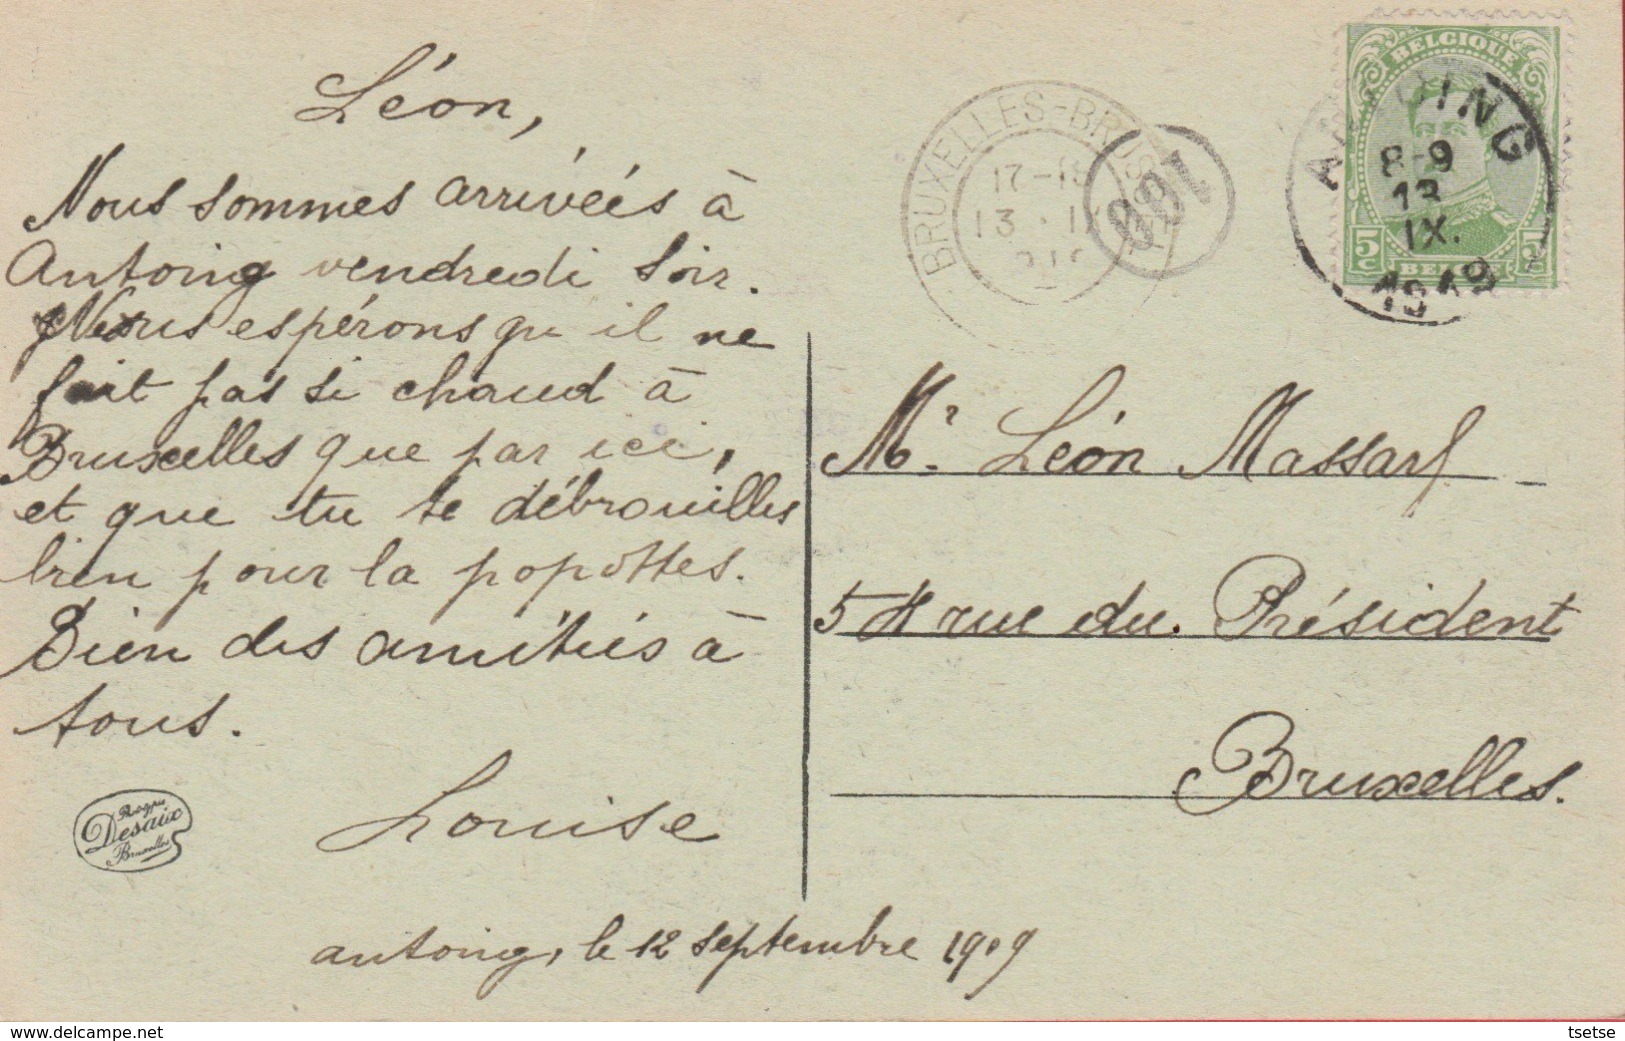 Léon,
Nous sommes arrivées à
Antoing vendredi soir.
Nous espérons qu'il ne
fait pas si chaud à
Bruxelles que par ici,
et que tu te débrouilles
bien pour la popottes.
Bien des amitiés à
tous.
Louise
antoing, le 12 septembre 1919
Desaix
Bruxelles
BRUXELLES-BRUS
17-18
13
188
BELGIQUE
5c
5c
BELGIE
ANTOING
8-9
13
IX.
1919
Mr. Léon Massart
54 rue du Président
Bruxelles.
www.delcampe.net
tsetse